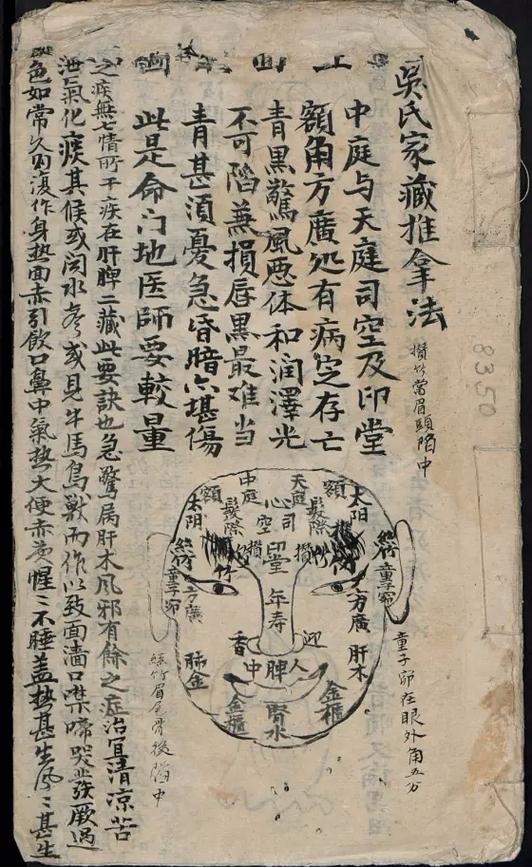 吳氏家藏推拿法
攢竹當眉頭陷中
8350
中庭与天庭司空及印堂
額角方廣処有病定存亡
青黑驚風惡体和润澤光
不可陷兼損唇黑最难当
青甚須憂急昏暗亦堪傷
此是命门地医師要較量
之疾無七情所干疾在肝脾二藏此要訣也急驚属肝木風邪有餘之症治宜清凉苦
泄氣化痰其候或闻水声或見牛馬鳥獸而作以致面濇口噤啼哭發厥過
色如常久則復作身热面赤引飲口鼻中氣热大便赤黄惺〻不睡盖热甚生風〻甚生
天庭
中庭
額
額
太阳
太阳
髮際
髮際
心
司
空
印堂
攢竹
攢竹
絲竹
絲竹
童子窌
童子窌
方廣
方廣
年寿
肝木
肺金
迎
香
人
中
脾
金櫃
金櫃
腎水
童子窌在眼外角五分
絲竹眉尾骨後陷中